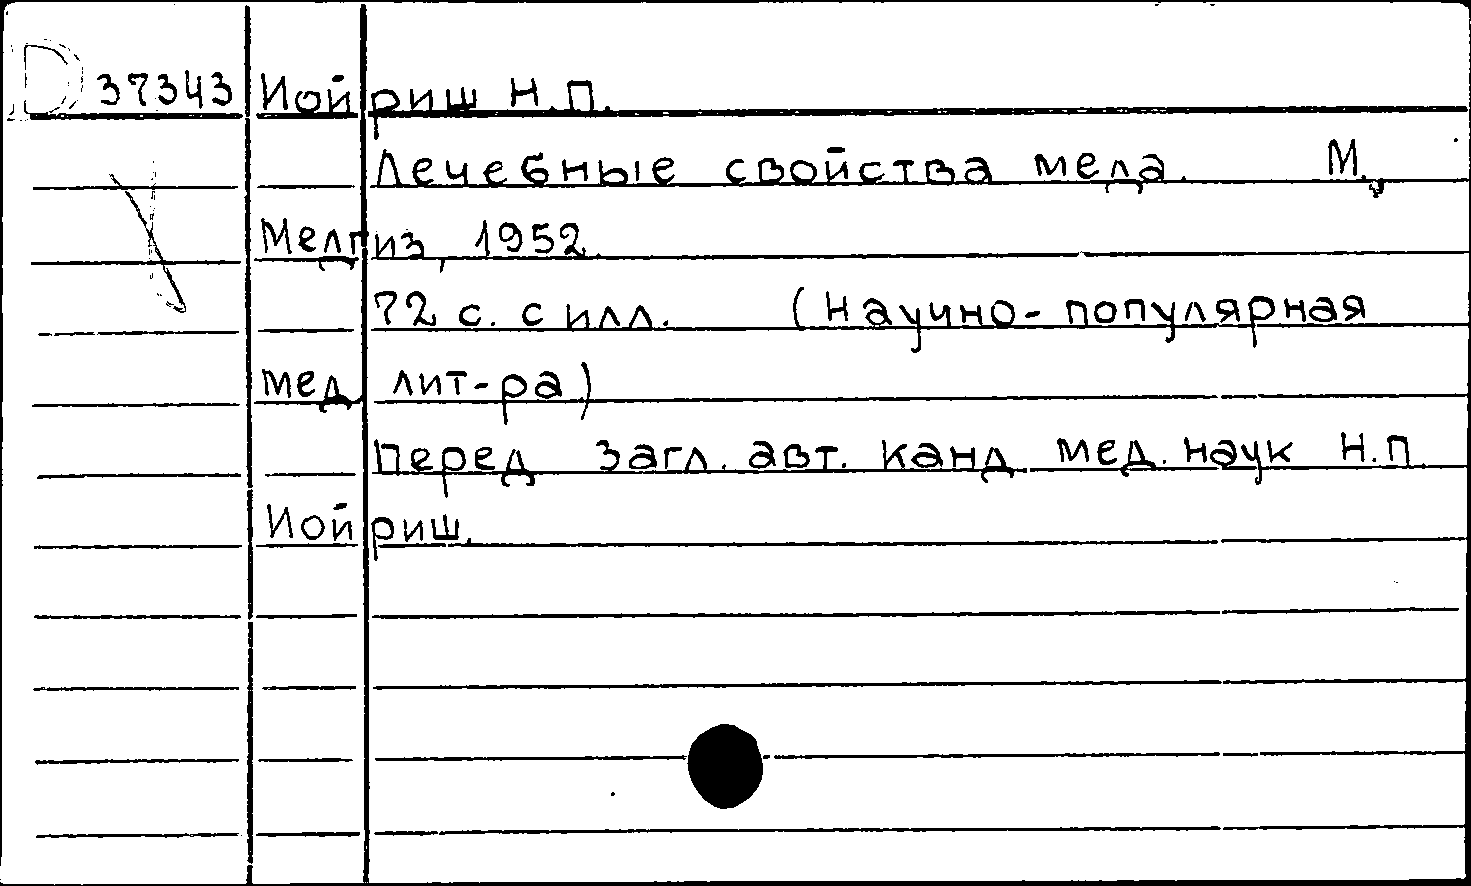 D 37343 Иойриш Н.П.
Лечебные свойства меда. М.,
Медгиз, 1952.
72 с. с илл. (Научно-популярная
мед. лит-ра)
Перед загл. авт. канд. мед. наук Н.П.
Иойриш.